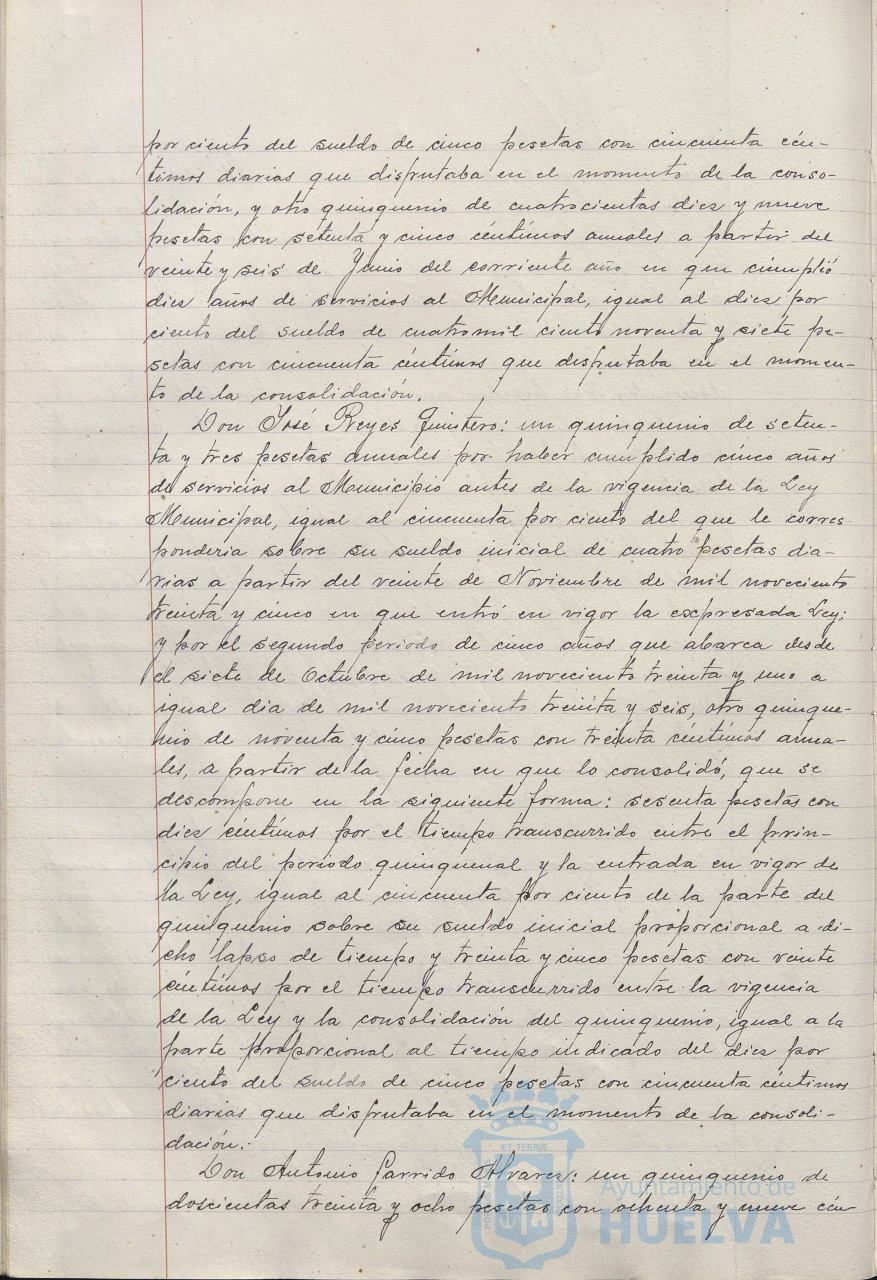 por ciento del sueldo de cinco pesetas con cincuenta cén-
timos diarias que disfrutaba en el momento de la conso-
lidación, y otro quinquenio de cuatrocientas diez y nueve
pesetas con setenta y cinco céntimos anuales a partir del
veinte y seis de Junio del corriente año en que cumplió
diez años de servicios al Municipal, igual al diez por
ciento del sueldo de cuatromil ciento noventa y siete pe-
setas con cincuenta céntimos que desfrutaba en el momen-
to de la consolidación.
Don José Reyes Quintero: un quinquenio de seten-
ta y tres pesetas anuales por haber cumplido cinco años
de servicios al Municipio antes de la vigencia de la Ley
Municipal, igual al cincuenta por ciento del que le corres
ponderia sobre su sueldo inicial de cuatro pesetas dia-
rias a partir del veinte de Noviembre de mil noveciento
treinta y cinco en que entró en vigor la expresada Ley;
y por el segundo periodo de cinco años que abarca desde
el siete de Octubre de mil noveciento treinta y uno a
igual dia de mil noveciento treinta y seis, otro quinque-
nio de noventa y cinco pesetas con treinta céntimos anua-
les, a partir de la fecha en que lo consolidó, que se
descompone en la siguiente forma: sesenta pesetas con
diez céntimos por el tiempo transcurrido entre el prin-
cipio del periodo quinquenal y la entrada en vigor de
la Ley, igual al cincuenta por ciento de la parte del
quinquenio sobre su sueldo inicial proporcional a di-
cho lapso de tiempo y treinta y cinco pesetas con veinte
céntimos por el tiempo transcurrido entre la vigencia
de la Ley y la consolidación del quinquenio, igual a la
parte proporcional al tiempo indicado del diez por
ciento del sueldo de cinco pesetas con cincuenta céntimos
diarias que disfrutaba en el momento de la consoli-
dación.
Don Antonio Garrido Alvarez: un quinquenio de
doscientas treinta y ocho pesetas con ochenta y nueve cén
ET TERRÆ
Ayuntamiento de
HUELVA